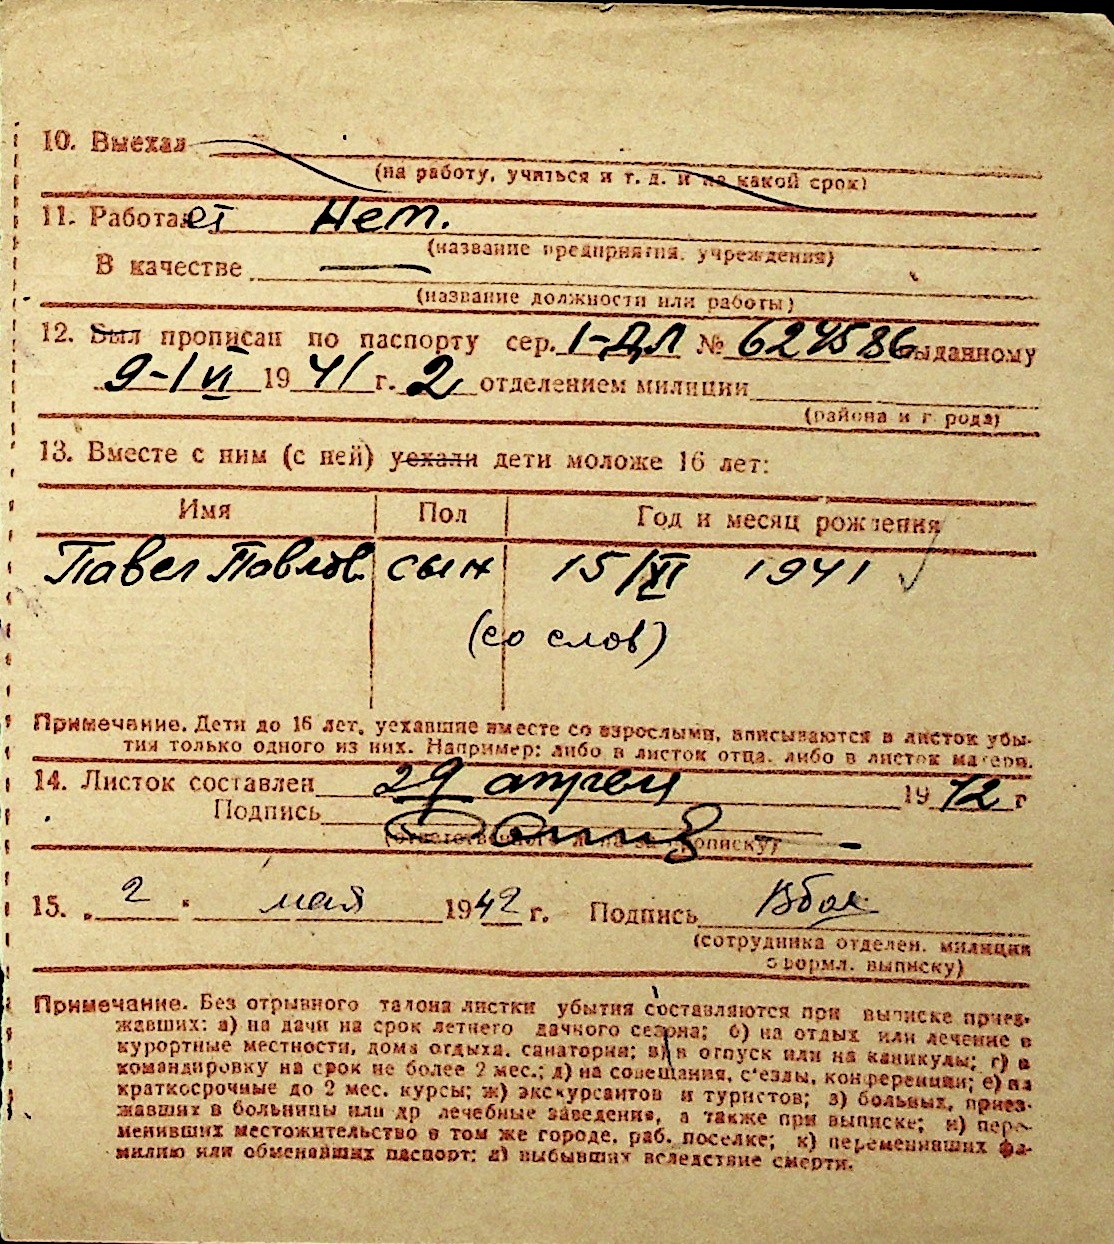 10. Выехал
(на работу, учиться и т. д. и на какой срок)
11. Работает Нет.
(название предприятия, учреждения)
В качестве —
(название должности или работы)
12. Был прописан по паспорту сер. 1-ДЛ № 624586 выданному
9-IVI 1941 г. 2 отделением милиции
(района и города)
13. Вместе с ним (с ней) уехали дети моложе 16 лет:
Имя Пол Год и месяц рождения
Павел Павлов. сын 15/XI 1941
(со слов)
Примечание. Дети до 16 лет, уехавшие вместе со взрослыми, вписываются в листок убы-
тия только одного из них. Например: либо в листок отца, либо в листок матери.
14. Листок составлен 29 апреля 1942 г
Подпись
(ответственного лица за прописку)
15. „2" мая 1942 г. Подпись
(сотрудника отделен. милиции
оформл. выписку)
Примечание. Без отрывного талона листки убытия составляются при выписке приез-
жавших: а) на дачи на срок летнего дачного сезона; б) на отдых или лечение в
курортные местности, дома отдыха, санатории; в) в отпуск или на каникулы; г) в
командировку на срок не более 2 мес.; д) на совещания, с'езды, конференции; е) на
краткосрочные до 2 мес. курсы; ж) экскурсантов и туристов; з) больных, приез-
жавших в больницы или др лечебные заведения, а также при выписке; и) пере-
менивших местожительство в том же городе, раб. поселке; к) переменивших фа-
милию или обменявших паспорт; л) выбывших вследствие смерти.